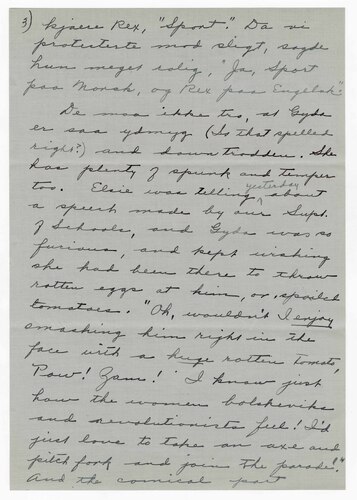 3) kjaere Rex, "Sport." Da vi
protesterte mod sligt, sagde
hun meget rolig, "Ja, Sport
paa Norsk, og Rex paa Engelsk."
De maa ikke tro, at Gyda
er saa ydmyg (Is that spelled
right?) and down trodden. She
has plenty of spunk and temper
too. Elsie was telling yesterday about
a speech made by our Supt.
of Schools, and Gyda was so
furious, and kept wishing
she had been there to throw
rotten eggs at him, or spoiled
tomatoes. "Oh, wouldn't I enjoy
smashing him right in the
face with a huge rotten tomato,
Pow! Zam! I know just
how the women bolsheviks
and revolutionists feel! I'd
just love to take an axe and
pitch fork and join the parade!"
And the comical part